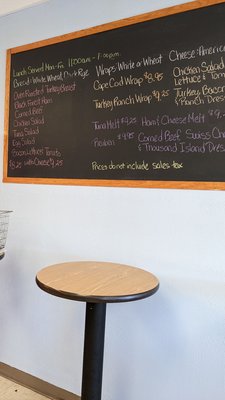 Lunch Served Mon-Fri 11:00am - 1:00pm
Bread: White, Wheat, Dark Rye
Oven Roasted Turkey Breast
Black Forest Ham
Corned Beef
Chicken Salad
Tuna Salad
Egg Salad
Bacon Lettuce Tomato
$8.25 with Cheese $9.25
Wraps: White or Wheat
Cape Cod Wrap $8.95
Turkey Ranch Wrap $9.25
Cheese: America
Chicken Salad
Lettuce & Tom
Turkey, Bacon
& Ranch Dres
Tuna Melt $9.25 Ham & Cheese Melt $9.
Reuben $9.95 Corned Beef, Swiss Ch
& Thousand Island Dres
Prices do not include sales tax